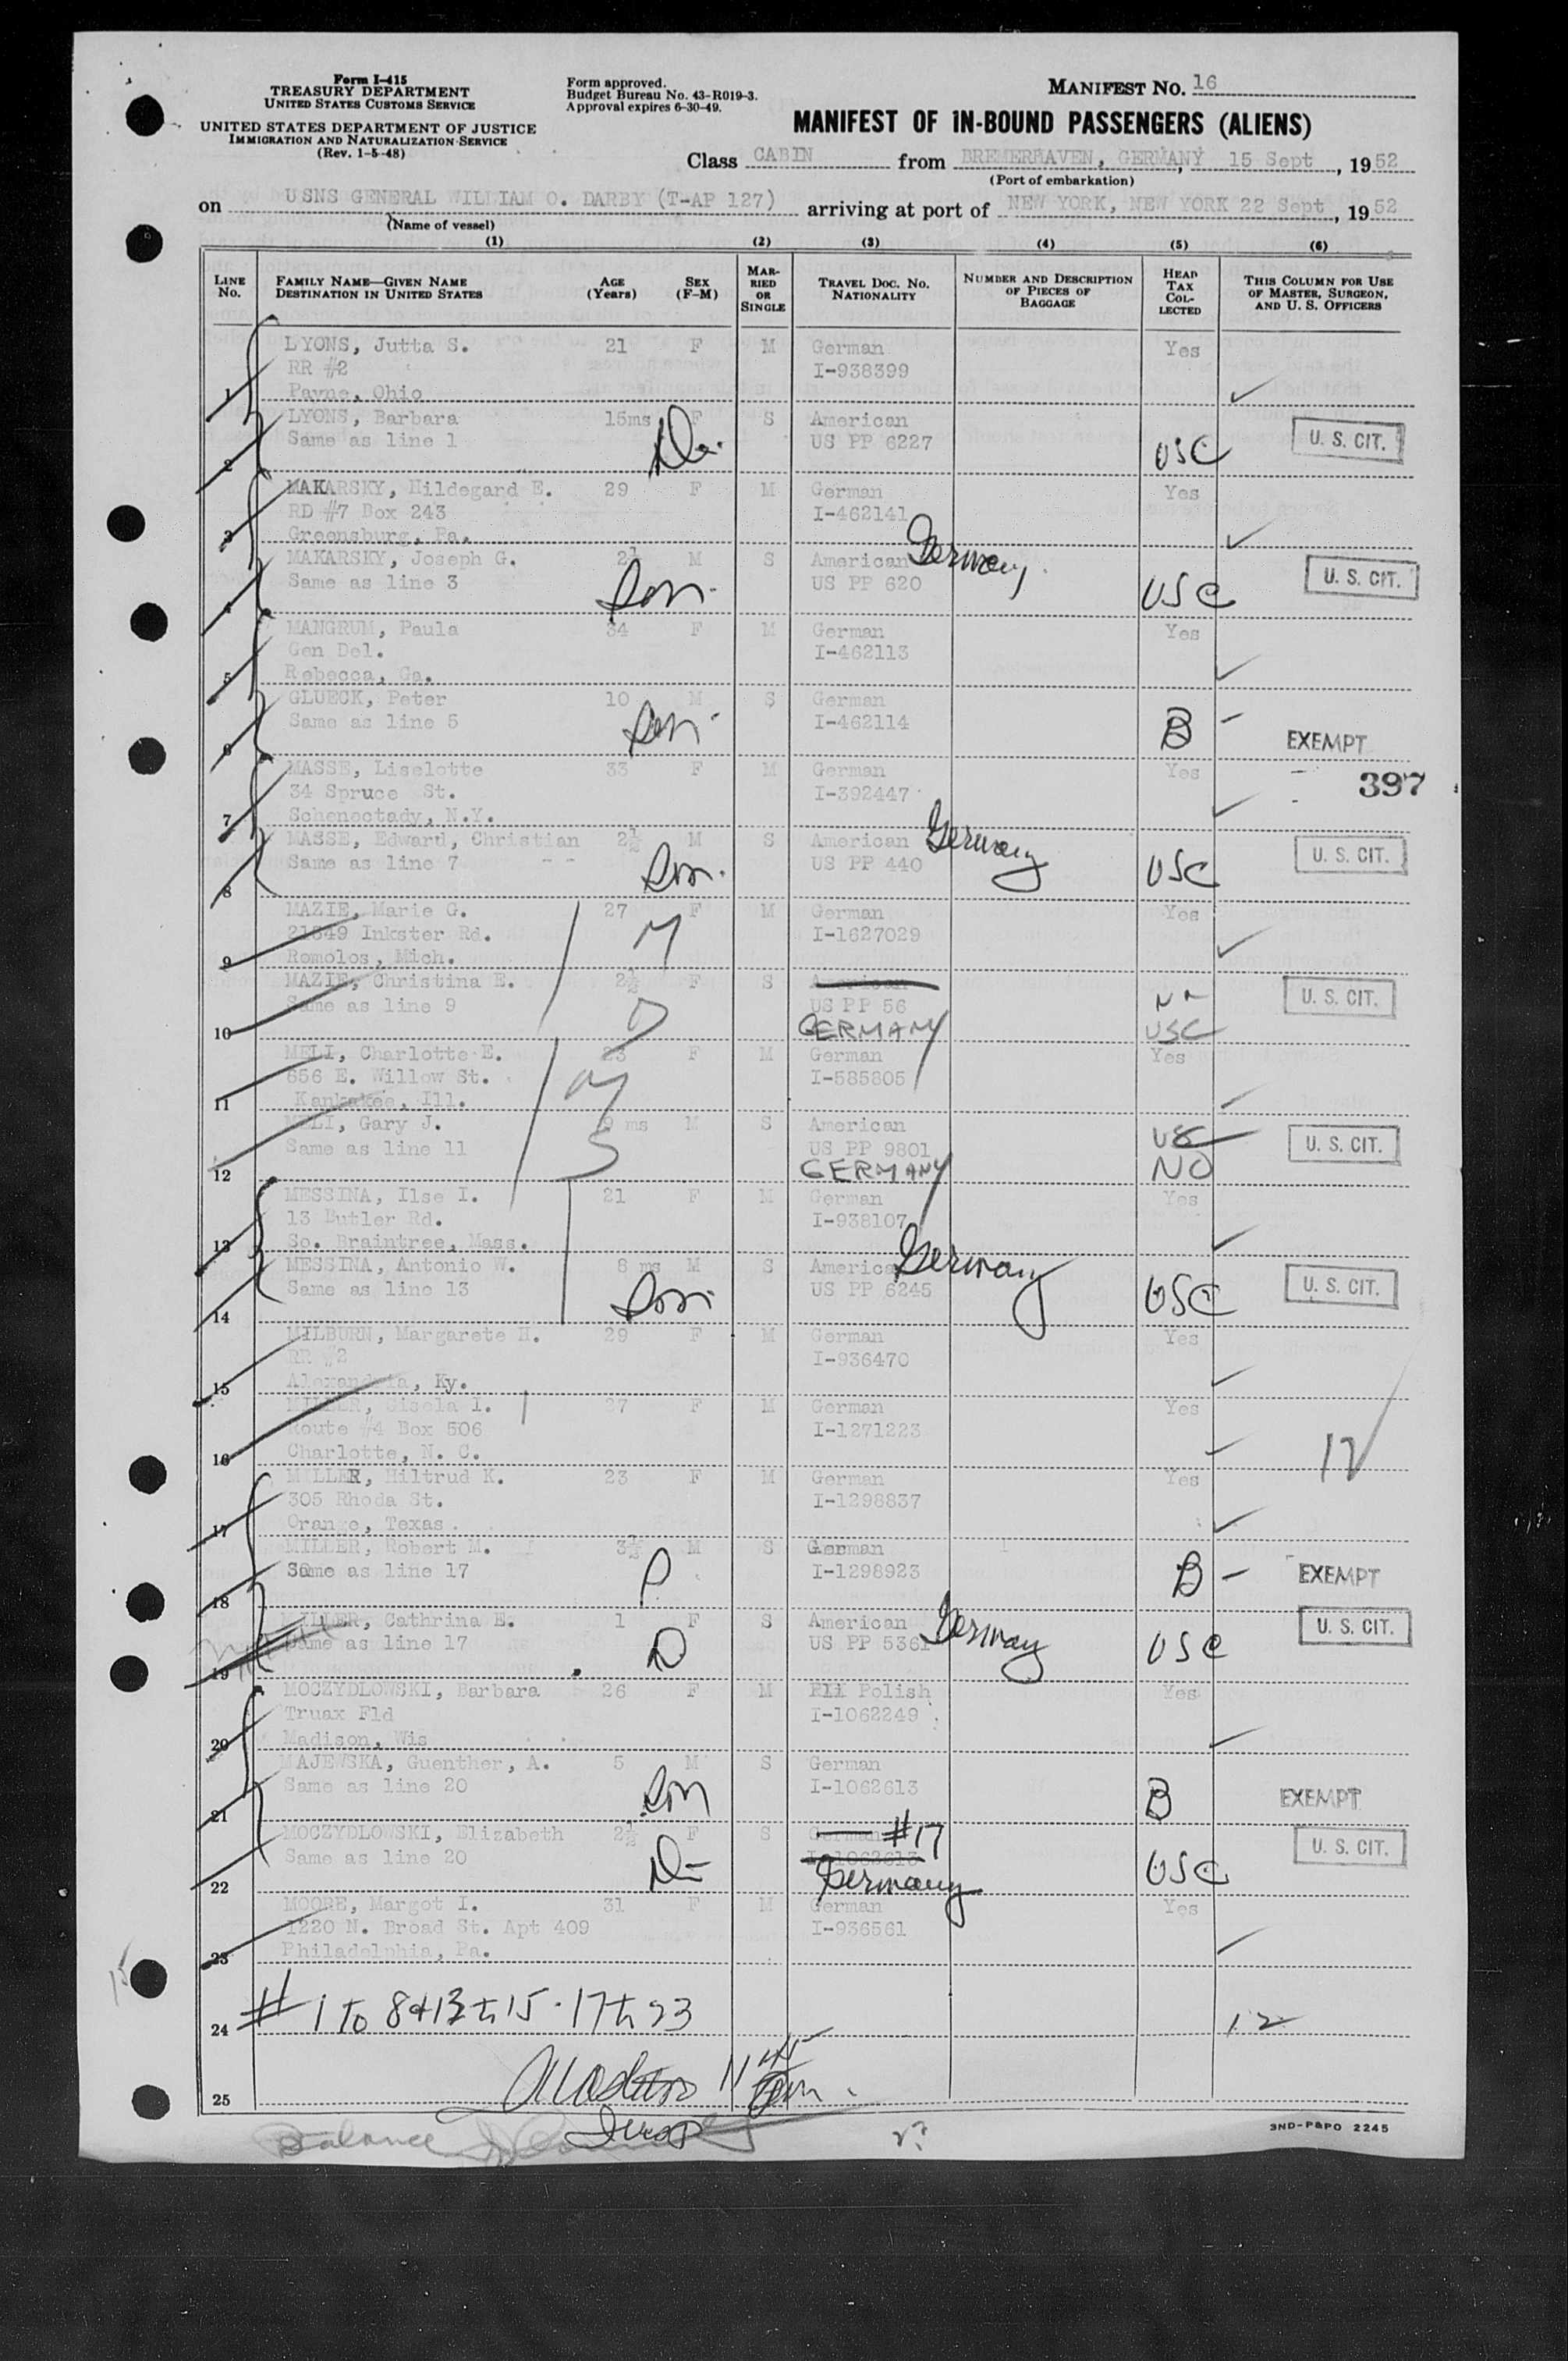 Form I-415
TREASURY DEPARTMENT
UNITED STATES CUSTOMS SERVICE
UNITED STATES DEPARTMENT OF JUSTICE
IMMIGRATION AND NATURALIZATION SERVICE
(Rev. 1-5-48)
Form approved.
Budget Bureau No. 43-R019-3.
Approval expires 6-30-49.
MANIFEST NO. 16
MANIFEST OF IN-BOUND PASSENGERS (ALIENS)
Class CABIN from BREMERHAVEN, GERMANY, 15 Sept, 1952
(Port of embarkation)
on USNS GENERAL WILLIAM O. DARBY (T-AP 127) arriving at port of NEW YORK, NEW YORK 22 Sept, 1952
(Name of vessel)
(1) (2) (3) (4) (5) (6)
LINE No. FAMILY NAME—GIVEN NAME DESTINATION IN UNITED STATES AGE (Years) SEX (F-M) MARRIED OR SINGLE TRAVEL DOC. NO. NATIONALITY NUMBER AND DESCRIPTION OF PIECES OF BAGGAGE HEAD TAX COLLECTED THIS COLUMN FOR USE OF MASTER, SURGEON, AND U. S. OFFICERS
LYONS, Jutta S. 21 F M German Yes
RR #2 I-938399
1 Payne, Ohio
LYONS, Barbara 15ms F S American U. S. CIT.
Same as line 1 Da. US PP 6227 USC
2
MAKARSKY, Hildegard E. 29 F M German Yes
RD #7 Box 243 I-462141
3 Greensburg, Pa.
MAKARSKY, Joseph G. 2½ M S American Germany U. S. CIT.
Same as line 3 Son US PP 620 USC
4
MANGRUM, Paula 34 F M German Yes
Gen Del. I-462113
5 Rebecca, Ga.
GLUECK, Peter 10 M S German
Same as line 5 Son I-462114 B EXEMPT
6
MASSE, Liselotte 33 F M German Yes 397
34 Spruce St. I-392447
7 Schenectady, N.Y.
MASSE, Edward, Christian 2½ M S American Germany U. S. CIT.
Same as line 7 Son US PP 440 USC
8
MAZIE, Marie G. 27 F M German Yes
21849 Inkster Rd. M I-1627029
9 Romolos, Mich.
MAZIE, Christina E. 2½ F S American U. S. CIT.
Same as line 9 D US PP 56
10 GERMANY USC
MELI, Charlotte E. 23 F M German Yes
656 E. Willow St. M I-585805
11 Kankakee, Ill.
MELI, Gary J. 9 ms M S American U. S. CIT.
Same as line 11 S US PP 9801
12 GERMANY NO
MESSINA, Ilse I. 21 F M German Yes
13 Butler Rd. I-938107
13 So. Braintree, Mass.
MESSINA, Antonio W. 8 ms M S American Germany U. S. CIT.
Same as line 13 Son US PP 6245 USC
14
MILBURN, Margarete H. 29 F M German Yes
RR #2 I-936470
15 Alexandria, Ky.
MILLER, Gisela I. 27 F M German Yes
Route #4 Box 506 I-1271223 12
16 Charlotte, N. C.
MILLER, Hiltrud K. 23 F M German Yes
305 Rhoda St. I-1298837
17 Orange, Texas
MILLER, Robert M. 3½ M S German
Same as line 17 I-1298923 B EXEMPT
18
MILLER, Cathrina E. 1 F S American Germany U. S. CIT.
Same as line 17 D US PP 5361 USC
19
MOCZYDLOWSKI, Barbara 26 F M Polish Yes
Truax Fld I-1062249
20 Madison, Wis
MAJEWSKA, Guenther, A. 5 M S German
Same as line 20 Son I-1062613 B EXEMPT
21
MOCZYDLOWSKI, Elizabeth 2½ F S German #17 U. S. CIT.
Same as line 20 D I-1062613 USC
22 Germany
MOORE, Margot I. 31 F M German Yes
1220 N. Broad St. Apt 409 I-936561
23 Philadelphia, Pa.
15
24 # 1 to 8 & 13 to 15 - 17 to 23 12
25
Balance
3ND-P&PO 2245